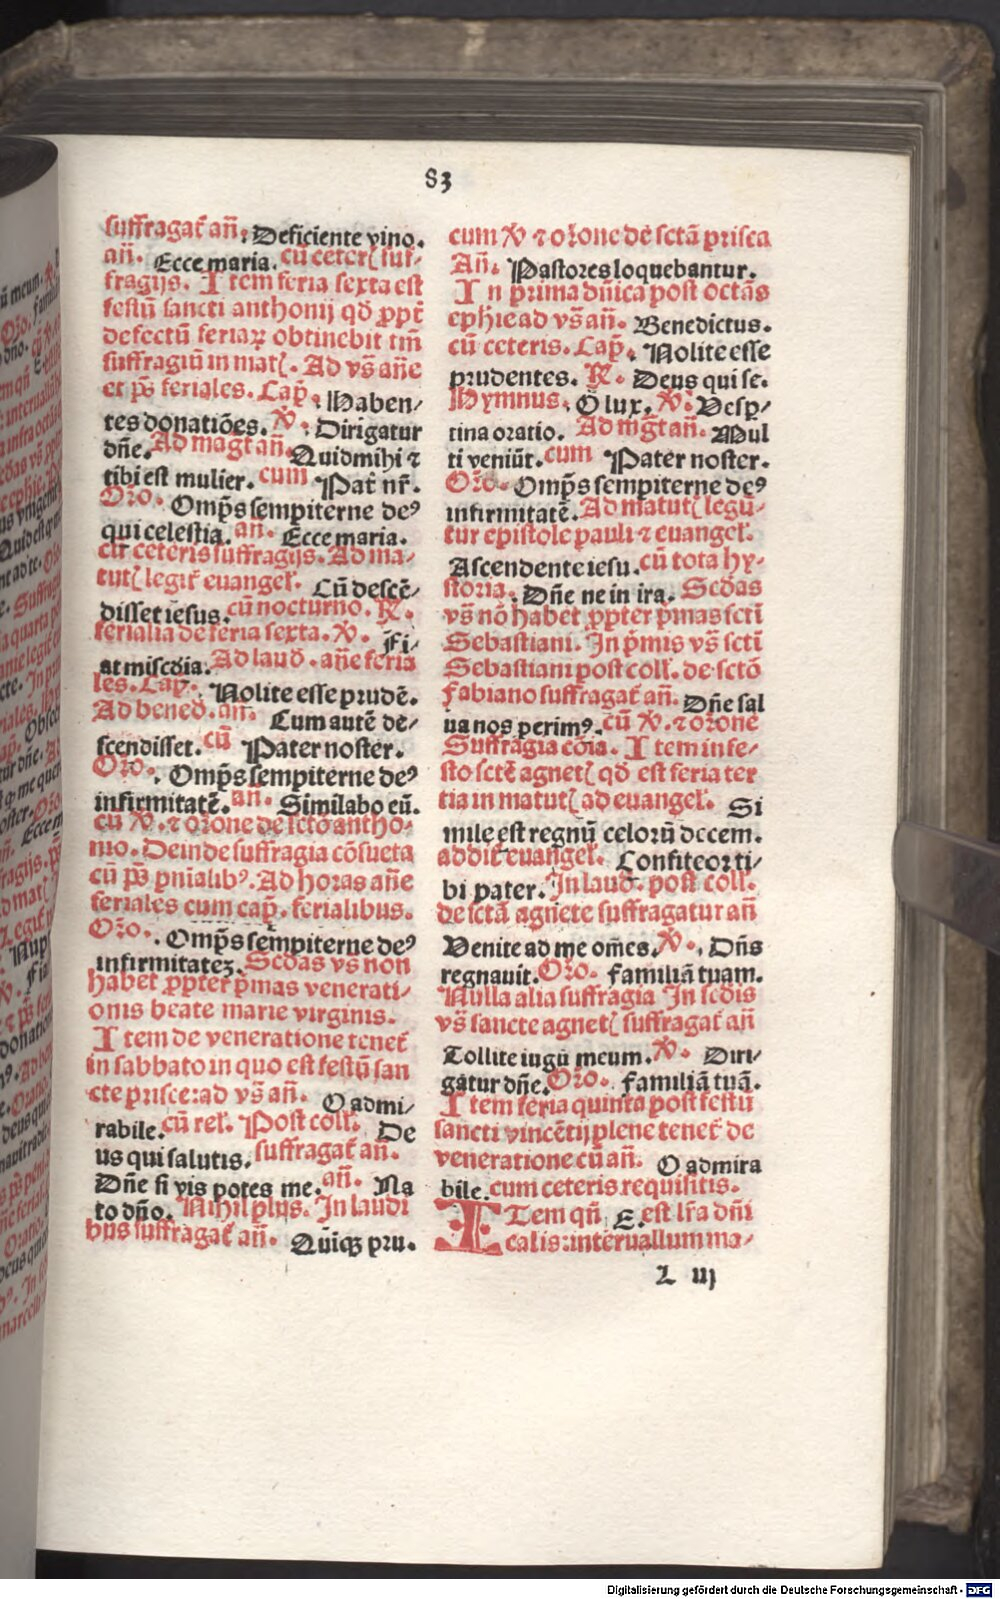 83
suffragat᷑ añ. Deficiente vino.
añ. Ecce maria. cū ceterꝭ suf-
fragijs. Item feria sexta est
festū sancti anthonij qď ꝓpt᷑
defectū feriaꝝ obtinebit tm̄
suffragiū in matꝭ. Ad vs̄ añe
et ps̄ feriales. Cap̄. Haben-
tes donatiōes. ℣. Dirigatur
dñe. Ad magt̄ añ. Quid mihi ⁊
tibi est mulier. cum Pat᷑ nr̄.
Oro. Omp̄s sempiterne de⁹
qui celestia. an. Ecce maria.
cū ceteris suffragijs. Ad ma-
tutꝭ legit᷑ euangel᷑. Cū descē-
disset iesus. cū nocturno. ℟.
ferialia de feria sexta. ℣. Fi-
at miscďia. Ad lauď. añe feria
les. Cap̄. Nolite esse prudē.
Ad beneď. añ. Cum autē de-
scendisset. cū Pater noster.
Oro. Omp̄s sempiterne de⁹
infirmitatē. an. Similabo eū.
cū ℣. ⁊ orōne de sctō antho-
nio. Deinde suffragia cōsueta
cū ps̄ pnīalib⁹. Ad horas añe
feriales cum cap̄. ferialibus.
Oro. Omp̄s sempiterne de⁹
infirmitateꝫ. Scďas vs̄ non
habet ꝓpter p̄mas venerati-
onis beate marie virginis.
Item de veneratione tenet᷑
in sabbato in quo est festū san
cte prisce: ad vs̄ añ. O admi-
rabile. cū rel᷑. Post coll᷑. De
us qui salutis. suffragat᷑ an.
Dñe si vis potes me. añ. Na
to dño. Nihil plus. In laudi
bus suffragat᷑ añ. Qūiqꝫ pru.
cum ℣ ⁊ orōne de sctā prisca
Añ. Pastores loquebantur.
In prima dn̄ica post octās
ephie ad vs̄ añ. Benedictus.
cū ceteris. Cap̄. Nolite esse
prudentes. ℟. Deus qui se.
Hymnus. O lux. ℣. Vesp-
tina oratio. Ad mḡt añ. Mul
ti veniūt. cum Pater noster.
Oro. Omp̄s sempiterne de⁹
infirmitatē. Ad matutꝭ legū-
tur epistole pauli ⁊ euangel᷑.
Ascendente iesu. cū tota hy-
storia. Dñe ne in ira. Scďas
vs̄ nō habet ꝓpter p̄mas scti
Sebastiani. In p̄mis vs̄ scti
Sebastiani post coll. de sctō
fabiano suffragat᷑ añ. Dñe sal
ua nos perim⁹. cū ℣. ⁊ orōne
Suffragia cōia. Item in fe-
sto sctē agnetꝭ qď est feria ter
tia in matutꝭ ad euangel᷑. Si
mile est regnū celorū decem.
addit᷑ euangel᷑. Confiteor ti-
bi pater. In lauď. post coll᷑.
de sctā agnete suffragatur añ
Venite ad me om̄es. ℣. Dñs
regnauit. Oro. Familiā tuam.
Nulla alia suffragia In scďis
vs̄ sancte agnetꝭ suffragat᷑ añ
Tollite iugū meum. ℣. Diri-
gatur dñe. Oro. Familiā tuā.
Item feria quinta post festū
sancti vincētij plene tenet᷑ de
veneratione cū añ. O admira
bile. cum ceteris requisitis.
ITem qn̄ E. est lr̄a dn̄i
calis: interuallum ma-
L iij
Digitalisierung gefördert durch die Deutsche Forschungsgemeinschaft - DFG